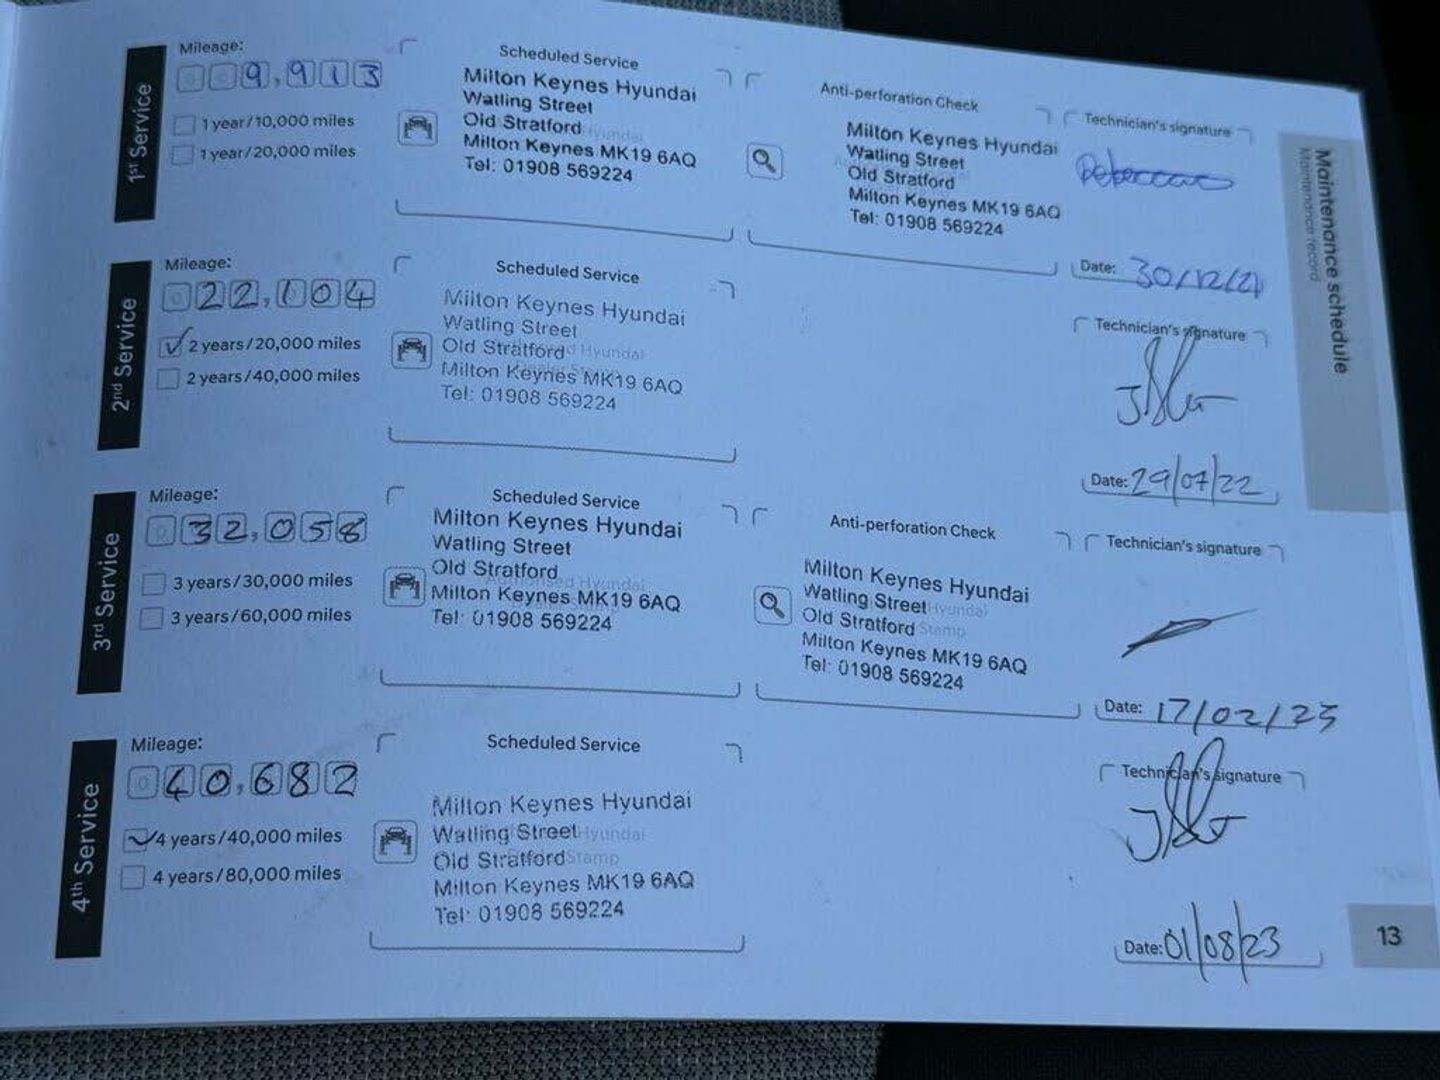 Maintenance schedule
Maintenance record
1st Service
Mileage:
009,913
1 year/10,000 miles
1 year/20,000 miles
Scheduled Service
Milton Keynes Hyundai
Watling Street
Old Stratford
Milton Keynes MK19 6AQ
Tel: 01908 569224
Anti-perforation Check
Milton Keynes Hyundai
Watling Street
Old Stratford
Milton Keynes MK19 6AQ
Tel: 01908 569224
Technician's signature
Date: 30/12/21
2nd Service
Mileage:
022,104
2 years/20,000 miles
2 years/40,000 miles
Scheduled Service
Milton Keynes Hyundai
Watling Street
Old Stratford
Milton Keynes MK19 6AQ
Tel: 01908 569224
Technician's signature
Date: 29/07/22
3rd Service
Mileage:
032,058
3 years/30,000 miles
3 years/60,000 miles
Scheduled Service
Milton Keynes Hyundai
Watling Street
Old Stratford
Milton Keynes MK19 6AQ
Tel: 01908 569224
Anti-perforation Check
Milton Keynes Hyundai
Watling Street
Old Stratford
Milton Keynes MK19 6AQ
Tel: 01908 569224
Technician's signature
Date: 17/02/23
4th Service
Mileage:
040,682
4 years/40,000 miles
4 years/80,000 miles
Scheduled Service
Milton Keynes Hyundai
Watling Street
Old Stratford
Milton Keynes MK19 6AQ
Tel: 01908 569224
Technician's signature
Date: 01/08/23
13